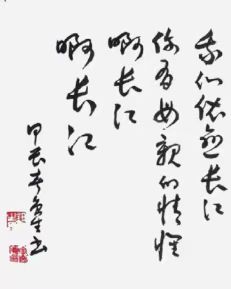 我们依恋长江
你有母亲的情怀
啊长江
啊长江
甲辰春
书